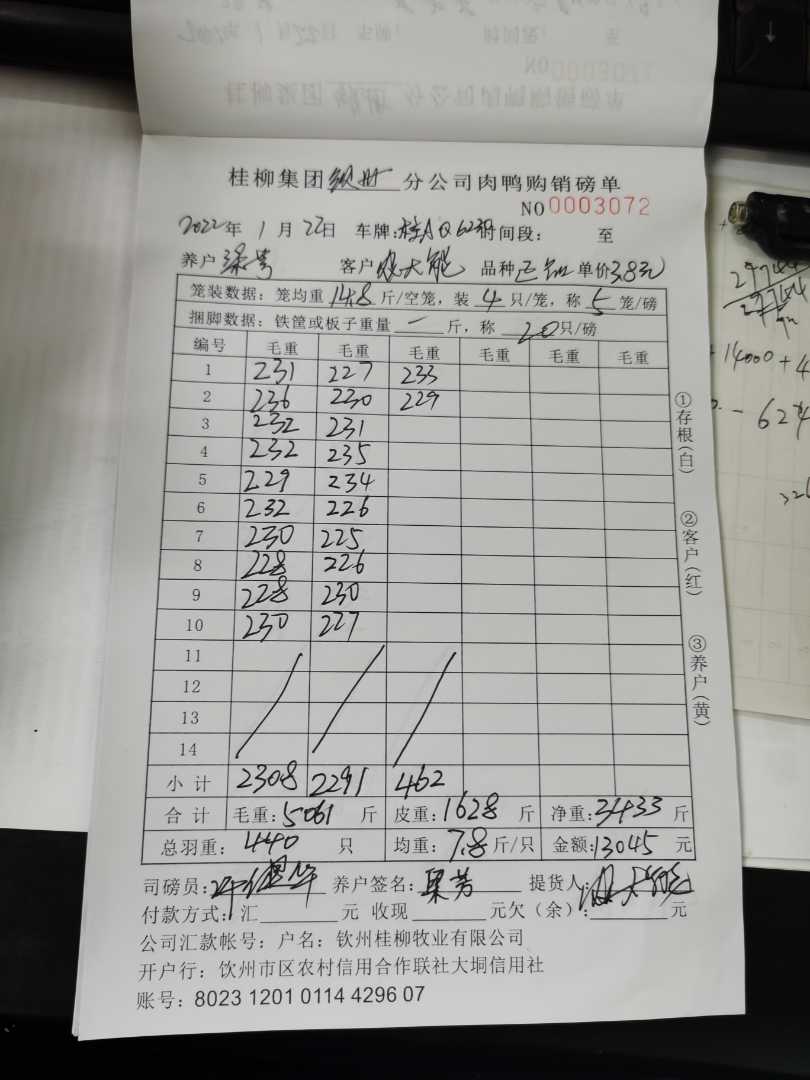 桂柳集团钦州分公司肉鸭购销磅单
NO 0003072
2022年 1月 22日 车牌:桂A Q6239 时间段: 至
养户 客户 品种 单价3.8元
笼装数据: 笼均重 14.8 斤/空笼, 装 4 只/笼, 称 5 笼/磅
捆脚数据: 铁筐或板子重量 一 斤, 称 20只/磅
编号 毛重 毛重 毛重 毛重 毛重 毛重
1 231 227 233
2 236 230 229
3 232 231
4 232 235
5 229 234
6 232 226
7 230 225
8 228 226
9 228 230
10 230 227
11
12
13
14
小计 2308 2291 462
合计 毛重:5061 斤 皮重:1628 斤 净重:3433 斤
总羽重: 440 只 均重: 7.8 斤/只 金额:13045 元
司磅员: 养户签名: 提货人:
付款方式: 汇 元 收现 元欠(余): 元
公司汇款帐号: 户名: 钦州桂柳牧业有限公司
开户行: 饮州市区农村信用合作联社大垌信用社
账号: 8023 1201 0114 4296 07
①存根(白)
②客户(红)
③养户(黄)
29744
14000 + 4